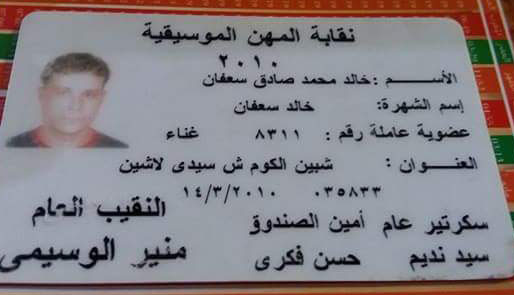 نقابة المهن الموسيقية
٢٠١٠
الأســـم : خالد محمد صادق سعفان
إسم الشهرة: خالد سعفان
عضوية عاملة رقم : ٨٣١١ غناء
العنـــوان : شبين الكوم ش سيدى لاشين
٠٣٥٨٣٣ ١٤/٣/٢٠١٠
سكرتير عام أمين الصندوق النقيب العام
سيد نديم حسن فكرى منير الوسيمى